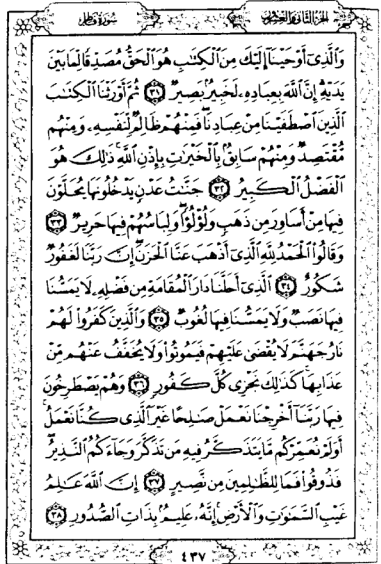 الجزء الثاني والعشرون
سورة فاطر
وَٱلَّذِىٓ أَوْحَيْنَآ إِلَيْكَ مِنَ ٱلْكِتَـٰبِ هُوَ ٱلْحَقُّ مُصَدِّقًا لِّمَا بَيْنَ
يَدَيْهِ إِنَّ ٱللَّهَ بِعِبَادِهِۦ لَخَبِيرٌۢ بَصِيرٌ ٣١ ثُمَّ أَوْرَثْنَا ٱلْكِتَـٰبَ
ٱلَّذِينَ ٱصْطَفَيْنَا مِنْ عِبَادِنَا فَمِنْهُمْ ظَالِمٌ لِّنَفْسِهِۦ وَمِنْهُم
مُّقْتَصِدٌ وَمِنْهُمْ سَابِقٌۢ بِٱلْخَيْرَٰتِ بِإِذْنِ ٱللَّهِ ذَٰلِكَ هُوَ
ٱلْفَضْلُ ٱلْكَبِيرُ ٣٢ جَنَّـٰتُ عَدْنٍ يَدْخُلُونَهَا يُحَلَّوْنَ
فِيهَا مِنْ أَسَاوِرَ مِن ذَهَبٍ وَلُؤْلُؤًا وَلِبَاسُهُمْ فِيهَا حَرِيرٌ ٣٣
وَقَالُوا۟ ٱلْحَمْدُ لِلَّهِ ٱلَّذِىٓ أَذْهَبَ عَنَّا ٱلْحَزَنَ إِنَّ رَبَّنَا لَغَفُورٌ
شَكُورٌ ٣٤ ٱلَّذِىٓ أَحَلَّنَا دَارَ ٱلْمُقَامَةِ مِن فَضْلِهِۦ لَا يَمَسُّنَا
فِيهَا نَصَبٌ وَلَا يَمَسُّنَا فِيهَا لُغُوبٌ ٣٥ وَٱلَّذِينَ كَفَرُوا۟ لَهُمْ
نَارُ جَهَنَّمَ لَا يُقْضَىٰ عَلَيْهِمْ فَيَمُوتُوا۟ وَلَا يُخَفَّفُ عَنْهُم مِّنْ
عَذَابِهَا كَذَٰلِكَ نَجْزِى كُلَّ كَفُورٍ ٣٦ وَهُمْ يَصْطَرِخُونَ
فِيهَا رَبَّنَآ أَخْرِجْنَا نَعْمَلْ صَـٰلِحًا غَيْرَ ٱلَّذِى كُنَّا نَعْمَلُ
أَوَلَمْ نُعَمِّرْكُم مَّا يَتَذَكَّرُ فِيهِ مَن تَذَكَّرَ وَجَآءَكُمُ ٱلنَّذِيرُ
فَذُوقُوا۟ فَمَا لِلظَّـٰلِمِينَ مِن نَّصِيرٍ ٣٧ إِنَّ ٱللَّهَ عَـٰلِمُ
غَيْبِ ٱلسَّمَـٰوَٰتِ وَٱلْأَرْضِ إِنَّهُۥ عَلِيمٌۢ بِذَاتِ ٱلصُّدُورِ ٣٨
٤٣٧